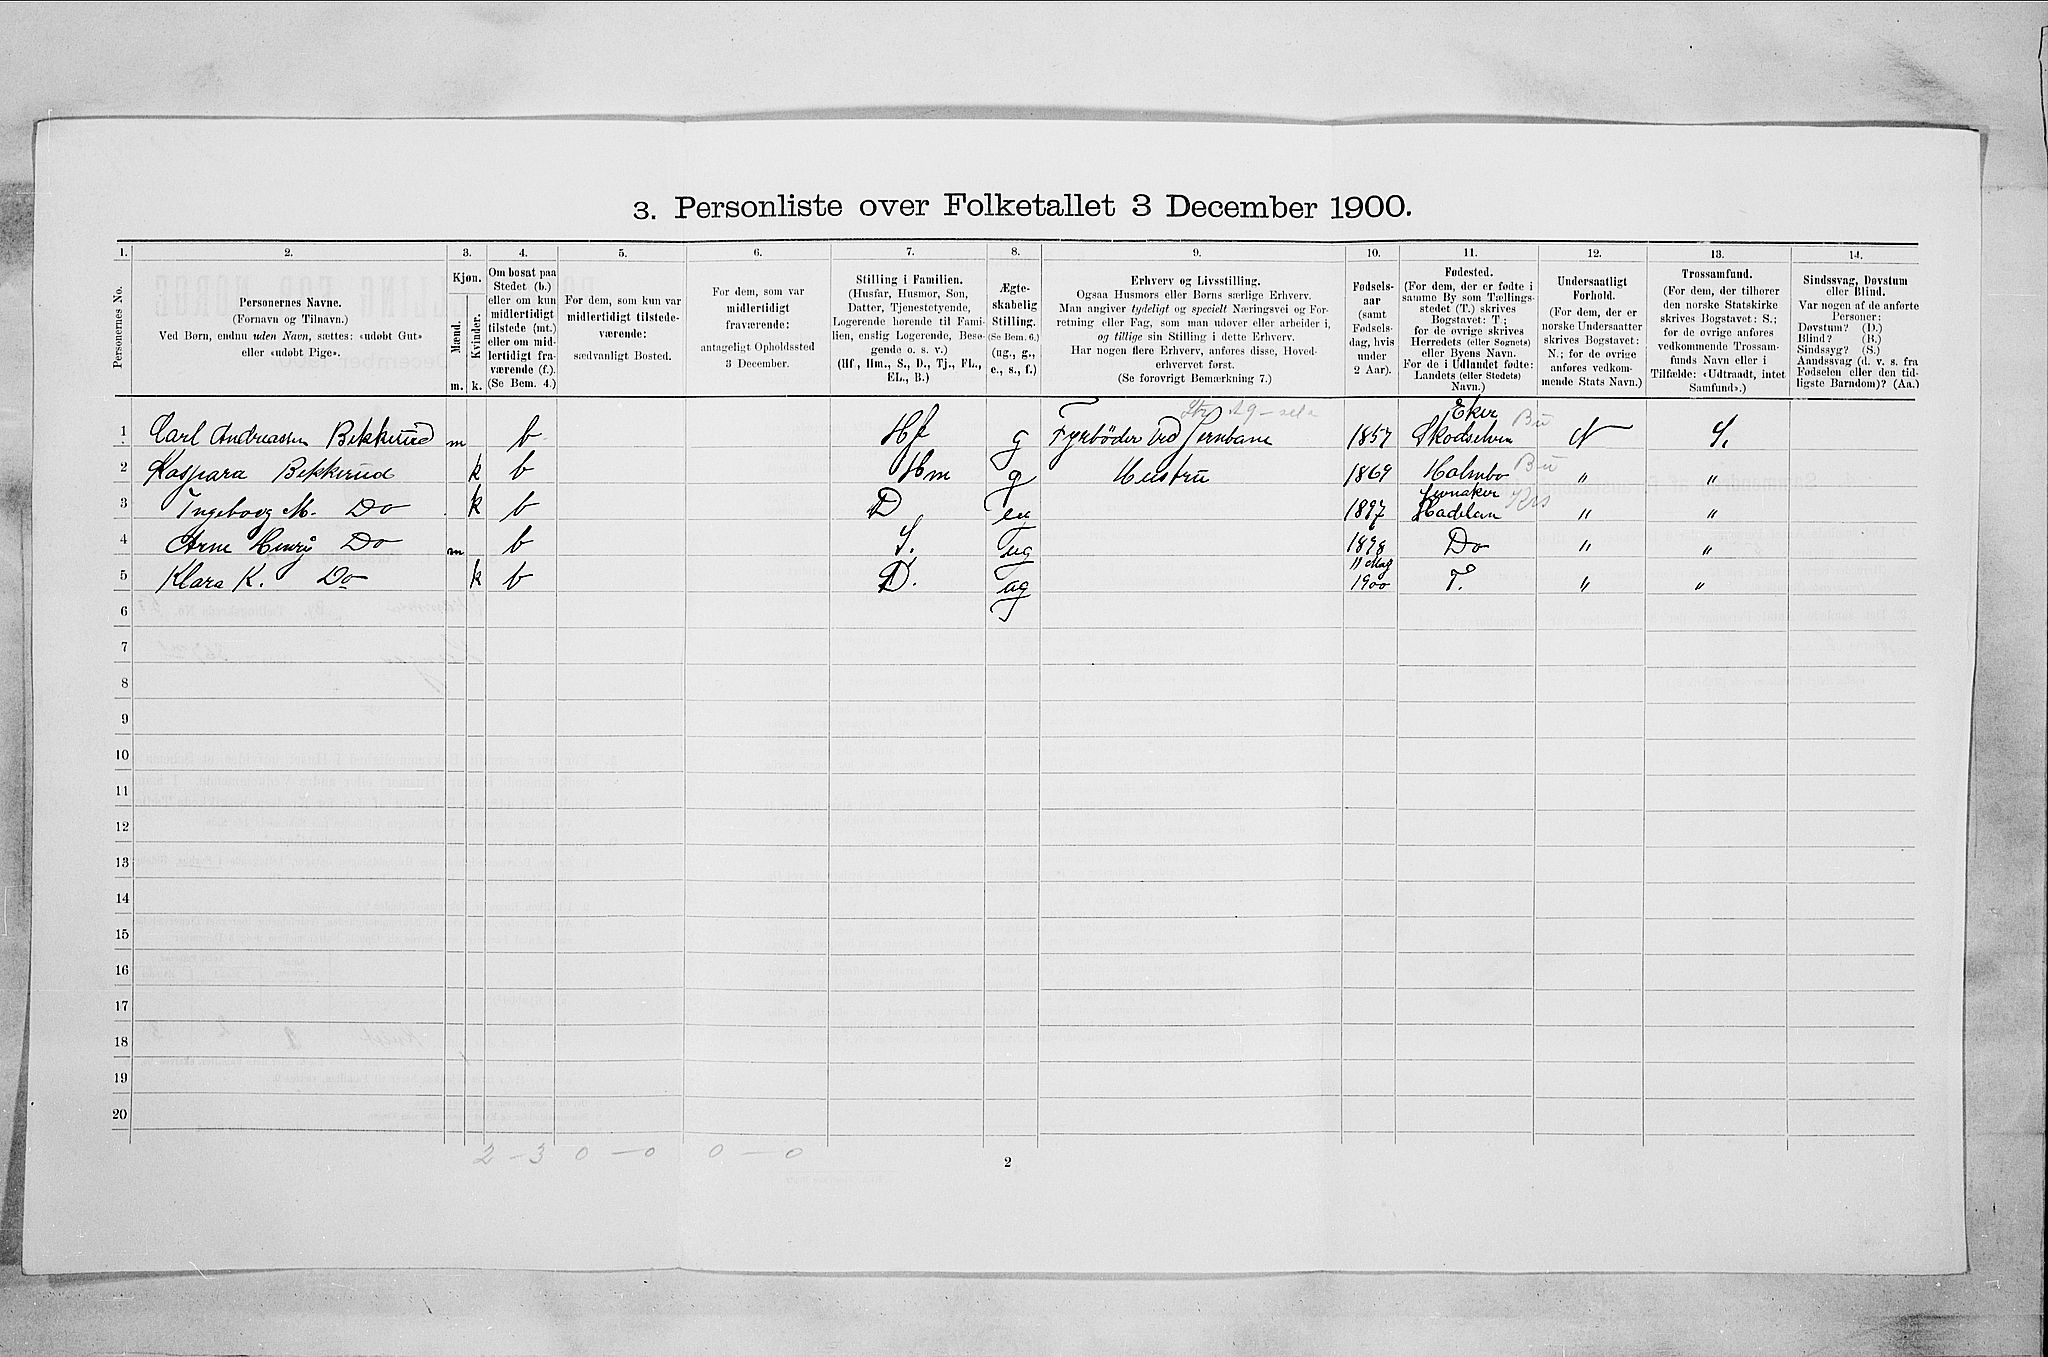 3. Personliste over Folketallet 3 December 1900.
1. 2. 3. 4. 5. 6. 7. 8. 9. 10. 11. 12. 13. 14.
Personernes No.
Personernes Navne.
(Fornavn og Tilnavn.)
Ved Børn, endnu uden Navn, sættes: «udøbt Gut»
eller «udøbt Pige».
Kjøn.
Mænd.
Kvinder.
m. k.
Om bosat paa
Stedet (b.)
eller om kun
midlertidigt
tilstede (mt.)
eller om mid-
lertidigt fra-
værende (f.).
(Se Bem. 4.)
For dem, som kun var
midlertidigt tilstede-
værende:
sædvanligt Bosted.
For dem, som var
midlertidigt
fraværende:
antageligt Opholdssted
3 December.
Stilling i Familien.
(Husfar, Husmor, Søn,
Datter, Tjenestetyende,
Logerende hørende til Fami-
lien, enslig Logerende, Besø-
gende o. s. v.)
(Hf., Hm., S., D., Tj., FL.,
EL., B.)
Ægte-
skabelig
Stilling.
(Se Bem. 6.)
(ug., g.,
e., s., f.)
Erhverv og Livsstilling.
Ogsaa Husmors eller Børns særlige Erhverv.
Man angiver tydeligt og specielt Næringsvei og For-
retning eller Fag, som man udøver eller arbeider i,
og tillige sin Stilling i dette Erhverv.
Har nogen flere Erhverv, anføres disse, Hoved-
erhvervet først.
(Se forøvrigt Bemærkning 7.)
Fødsels-
aar
(samt
Fødsels-
dag, hvis
under
2 Aar).
Fødested.
(For dem, der er fødte i
samme By som Tællings-
stedet (T.) skrives
Bogstavet: T;
for de øvrige skrives
Herredets (eller Sognets)
eller Byens Navn.
For de i Udlandet fødte:
Landets (eller Stedets)
Navn.)
Undersaatligt
Forhold.
(For dem, der er
norske Undersaatter
skrives Bogstavet:
N.; for de øvrige
anføres vedkom-
mende Stats Navn.)
Trossamfund.
(For dem, der tilhører
den norske Statskirke
skrives Bogstavet: S.;
for de øvrige anføres
vedkommende Trossam-
funds Navn eller i
Tilfælde: «Udtraadt, intet
Samfund».)
Sindssvag, Døvstum
eller Blind.
Var nogen af de anførte
Personer:
Døvstum? (D.)
Blind? (B.)
Sindssyg? (S.)
Aandssvag (d. v. s. fra
Fødselen eller den tid-
ligste Barndom)? (Aa.)
Eker
1 Carl Andreassen Bekkerud m b Hf g Fyrbøder ved Jernbane 1857 Skodselven Bu N S.
2 Kaspara Bekkerud k b Hm g Hustru 1869 Holmbo Bu " "
Jevnaker
3 Ingeborg M. Do k b D ug 1897 Hadelan Krs " "
4 Arne Henry Do m b S. ug 1898 Do " "
11 Mag
5 Klara K. Do k b D. ug 1900 T. " "
6
7
8
9
10
11
12
13
14
15
16
17
18
19
20
2 – 3 0 – 0 0 – 0
2